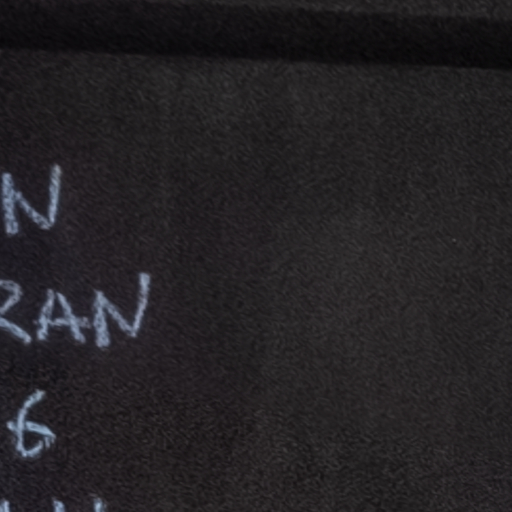 N
RAN
6